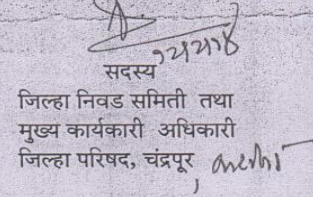 सदस्य
जिल्हा निवड समिती तथा
मुख्य कार्यकारी अधिकारी
जिल्हा परिषद, चंद्रपूर